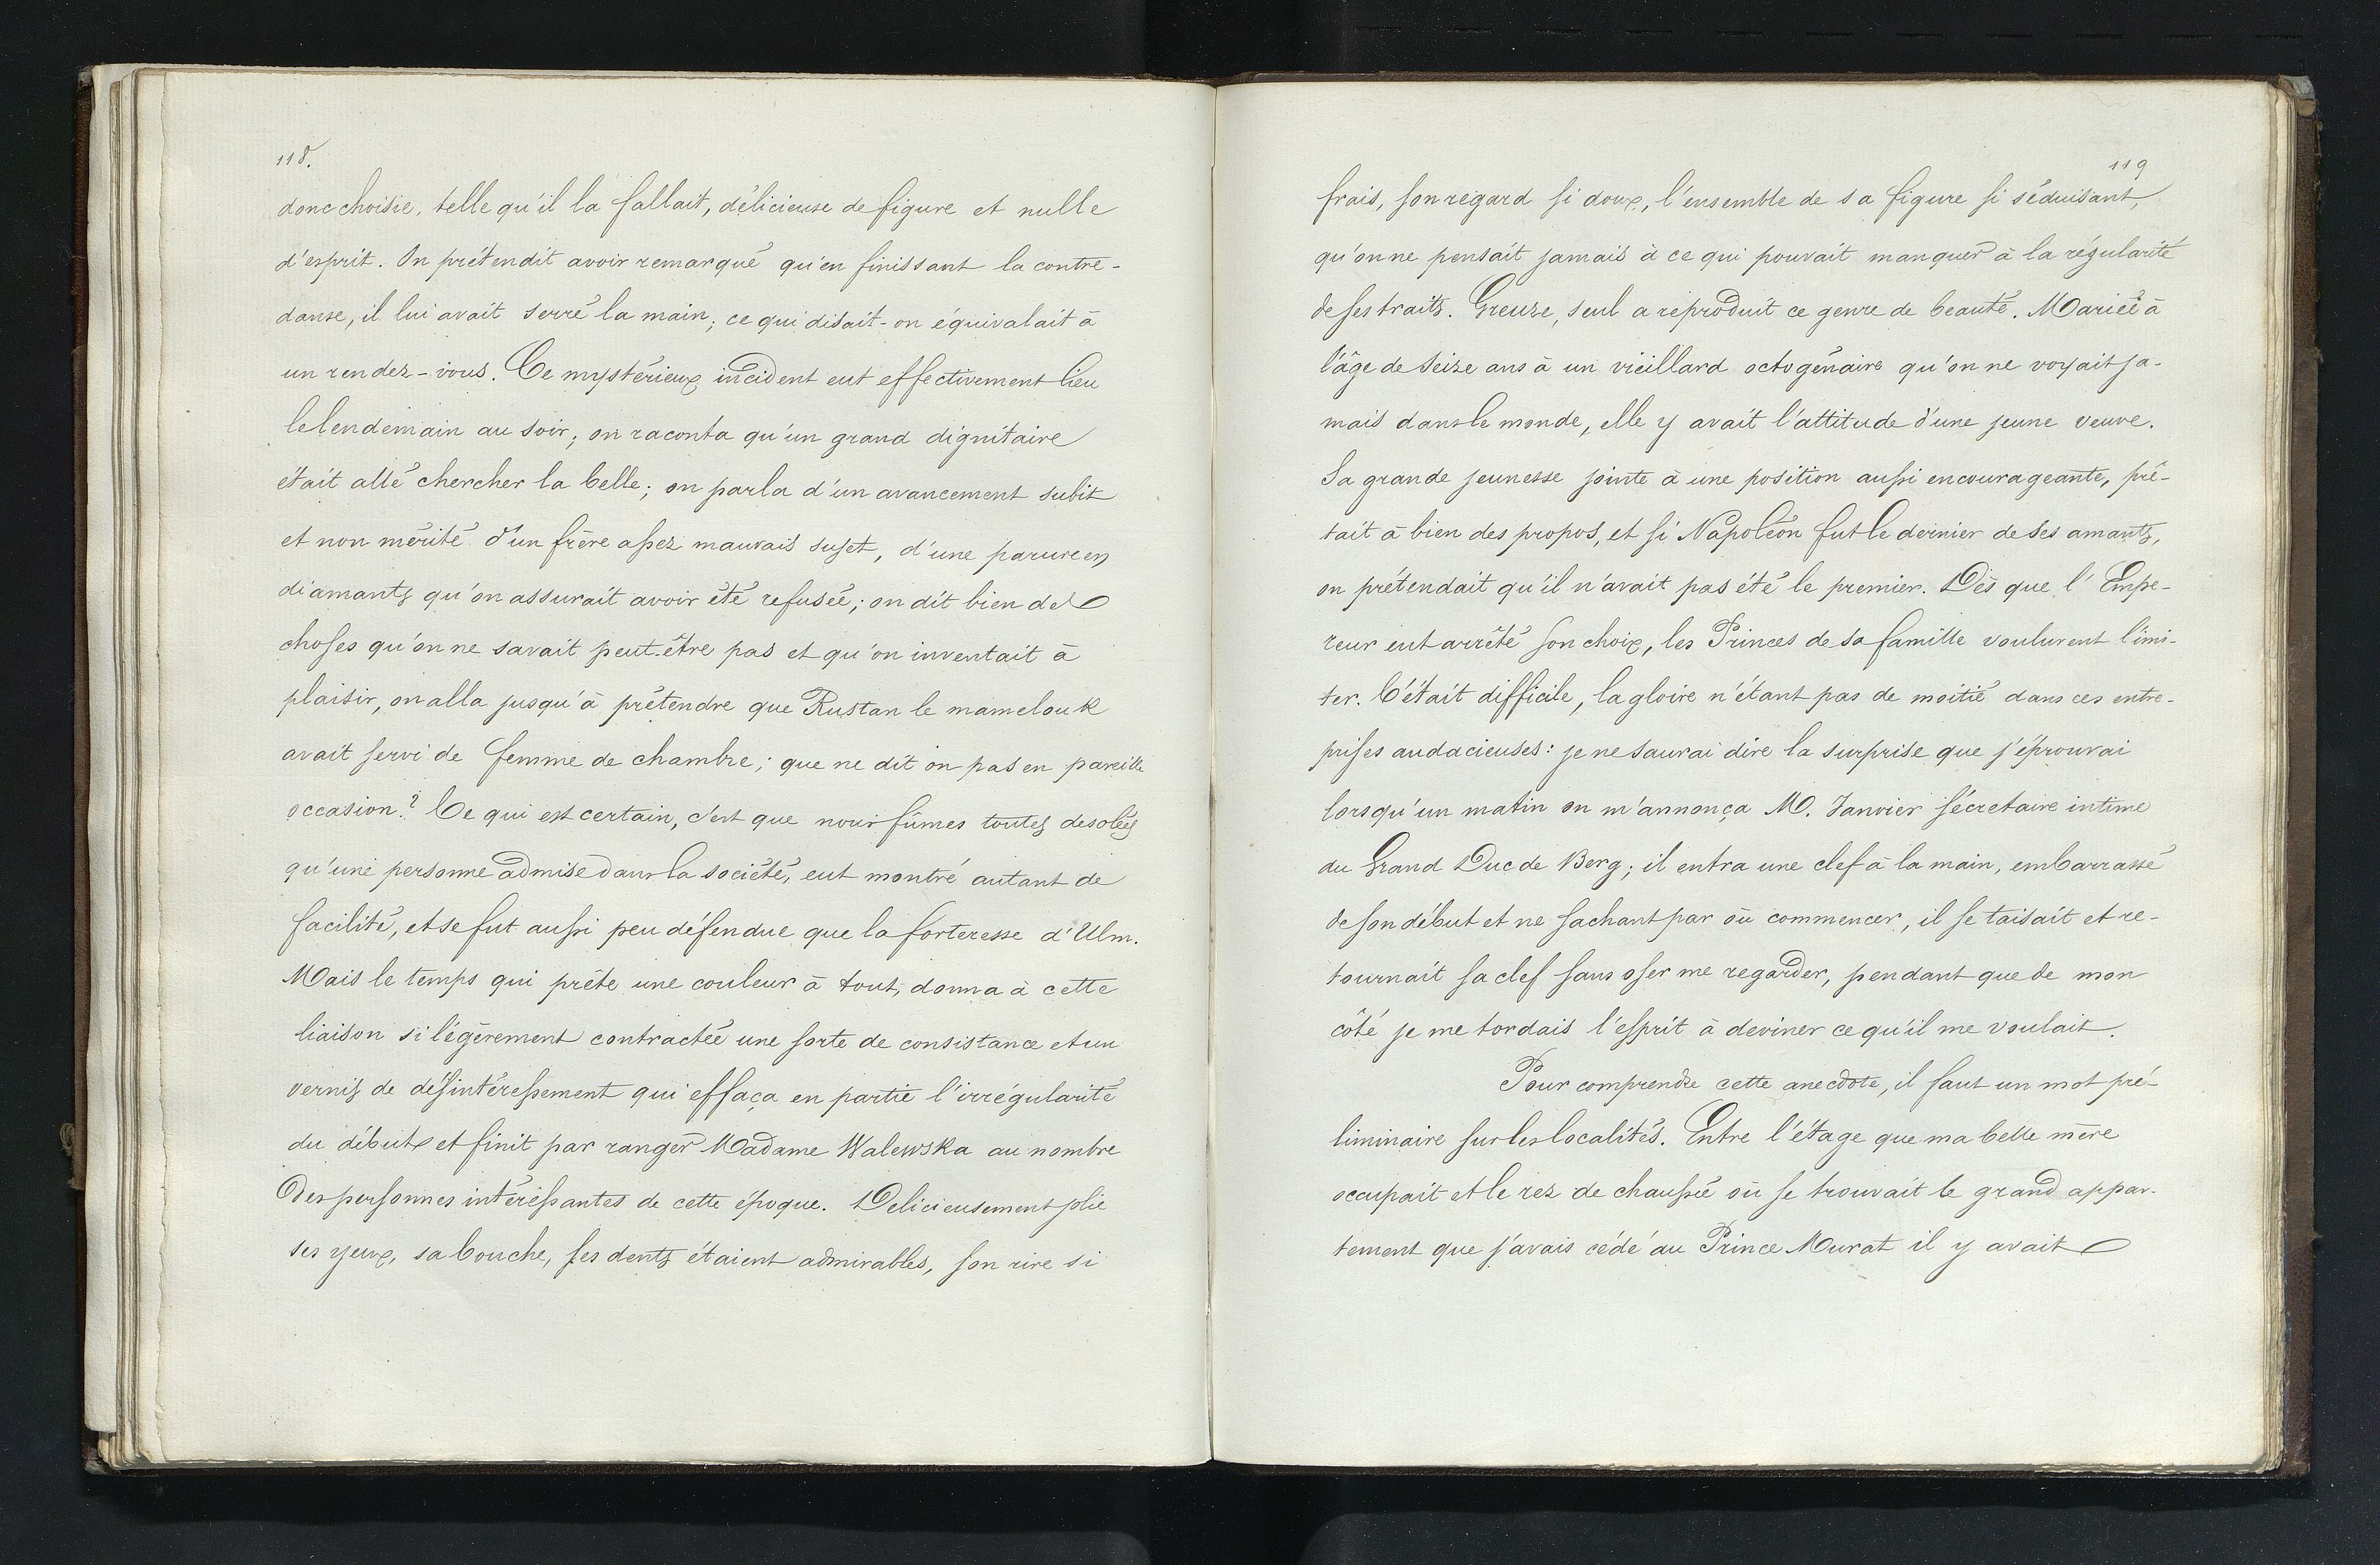 118.
donc choisie, telle qu'il la fallait, délicieuse de figure et nulle
d'esprit. On prétendit avoir remarqué qu'en finissant la contre-
danse, il lui avait serré la main; ce qui disait-on équivalait à
un rendez-vous. Ce mystérieux incident eut effectivement lieu
le lendemain au soir; on raconta qu'un grand dignitaire
était allé chercher la belle; on parla d'un avancement subit
et non mérité d'un frère assez mauvais sujet, d'une parure en
diamants qu'on assurait avoir été refusée; on dit bien des
choses qu'on ne savait peut-être pas et qu'on inventait à
plaisir, on alla jusqu'à prétendre que Rustan le mamelouk
avait servi de femme de chambre; que ne dit on pas en pareille
occasion? Ce qui est certain, c'est que nous fûmes toutes desolées
qu'une personne admise dans la société, eut montré autant de
facilité, et se fut aussi peu défendue que la forteresse d'Ulm.
Mais le temps qui prête une couleur à tout, donna à cette
liaison si légèrement contractée une sorte de consistance et un
vernis de désintéressement qui effaça en partie l'irrégularité
du début et finit par ranger Madame Walewska au nombre
des personnes intéressantes de cette époque. Delicieusement jolie
ses yeux, sa bouche, ses dents étaient admirables, son rire si
119
frais, son regard si doux, l'ensemble de sa figure si séduisant,
qu'on ne pensait jamais à ce qui pouvait manquer à la régularité
de ses traits. Greuze, seul a reproduit ce genre de beauté. Mariée à
l'âge de seize ans à un vieillard octogénaire qu'on ne voyait ja-
mais dans le monde, elle y avait l'attitude d'une jeune veuve.
Sa grande jeunesse jointe à une position aussi encourageante, prê-
tait à bien des propos, et si Napoléon fut le dernier de ses amants,
on prétendait qu'il n'avait pas été le premier. Dès que l'Empe-
reur eut arrêté son choix, les Princes de sa famille voulurent l'imi-
ter. C'était difficile, la gloire n'étant pas de moitié dans ces entre-
prises audacieuses: je ne saurai dire la surprise que j'éprouvai
lorsqu'un matin on m'annonça M. Janvier sécretaire intime
du Grand Duc de Berg; il entra une clef à la main, embarrassé
de son début et ne sachant par où commencer, il se taisait et re-
tournait sa clef sans oser me regarder, pendant que de mon
côté je me tordais l'esprit à deviner ce qu'il me voulait.
Pour comprendre cette anecdote, il faut un mot pré-
liminaire sur les localités. Entre l'étage que ma belle mère
occupait et le rez de chaussée où se trouvait le grand appar-
tement que j'avais cédé au Prince Murat il y avait